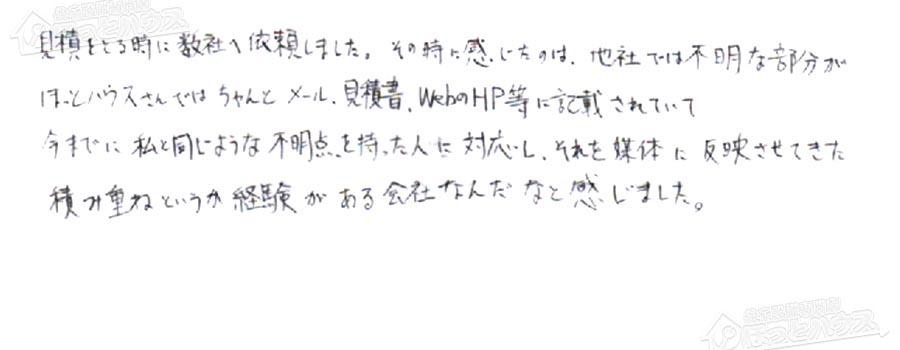 見積をとる時に数社へ依頼しました。その時に感じたのは、他社では不明な部分が
ほっとハウスさんではちゃんとメール、見積書、WebのHP等に記載されていて
今までに私と同じような不明点を持った人に対応し、それを媒体に反映させてきた
積み重ねというか経験がある会社なんだなと感じました。
ほっとハウス
ほっとハウス